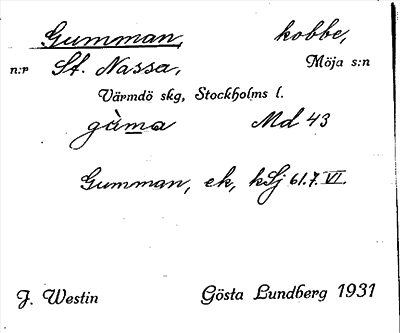 Gumman, kobbe,
n:r St. Nassa, Möja s:n
Värmdö skg, Stockholms l.
gùma Md 43
Gumman, ek, kSj 61.7.VI.
J. Westin Gösta Lundberg 1931